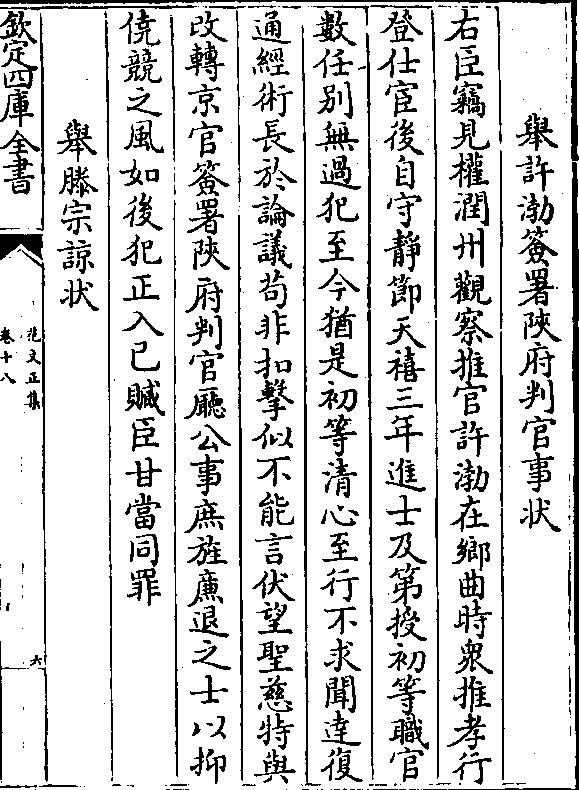 舉許渤簽署陜府判官事狀
右臣竊見權潤州觀察推官許渤在鄉曲時衆推孝行
登仕宦後自守靜節天禧三年進士及第授初等職官
數任別無過犯至今猶是初等清心至行不求聞達復
通經術長於論議苟非扣擊似不能言伏望聖慈特與
改轉京官簽署陜府判官廳公事庶旌廉退之士以抑
僥競之風如後犯正入己贓臣甘當同罪
舉滕宗諒狀
欽定四庫全書
范文正集
卷十八
六